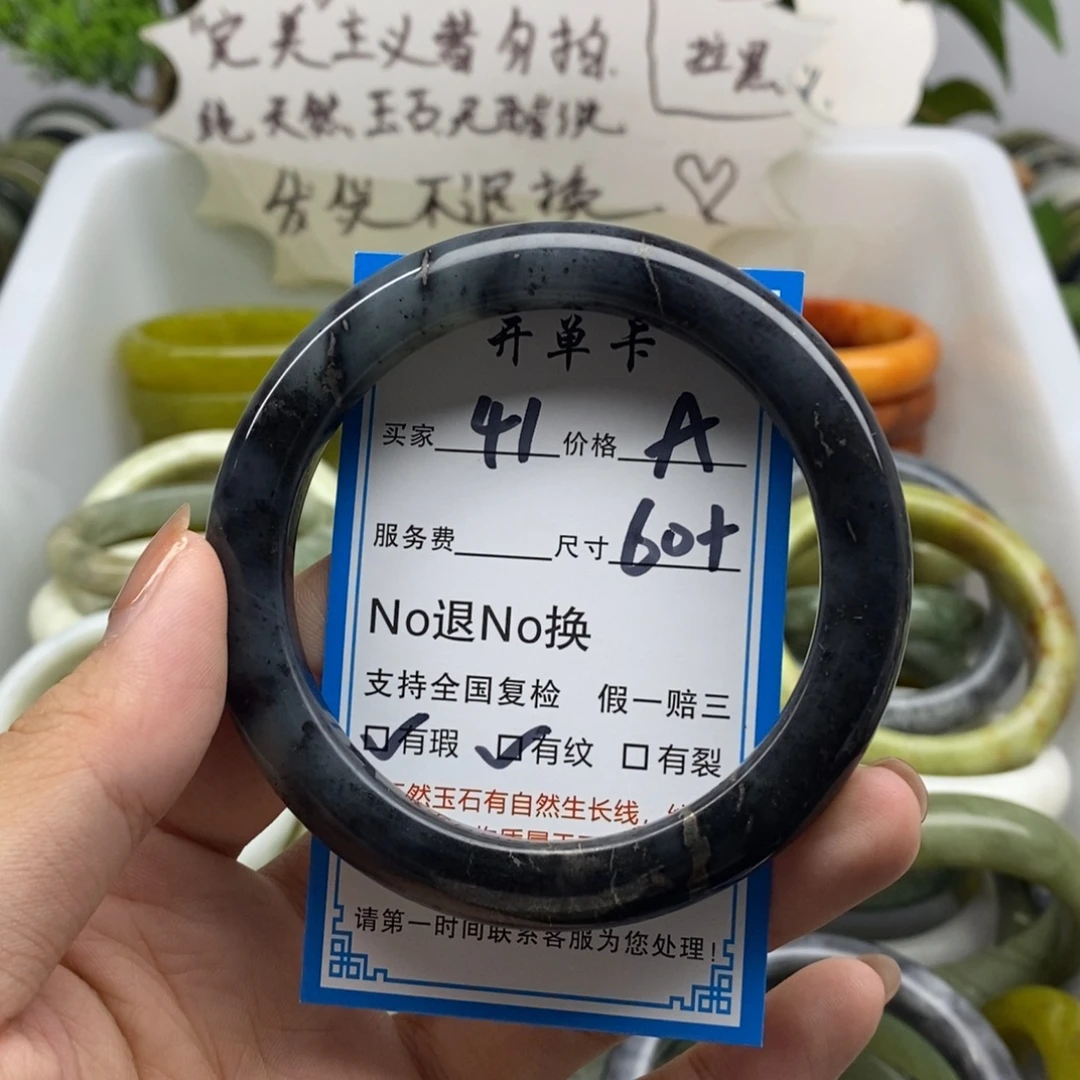 "完美"主义者勿拍
拉黑
纯天然玉石无酸洗
售出不退换
开单卡
买家 41 价格 A
服务费 尺寸 60+
No退No换
支持全国复检 假一赔三
☑有瑕 ☑有纹 □有裂
然玉石有自然生长线,
请第一时间联系客服为您处理!